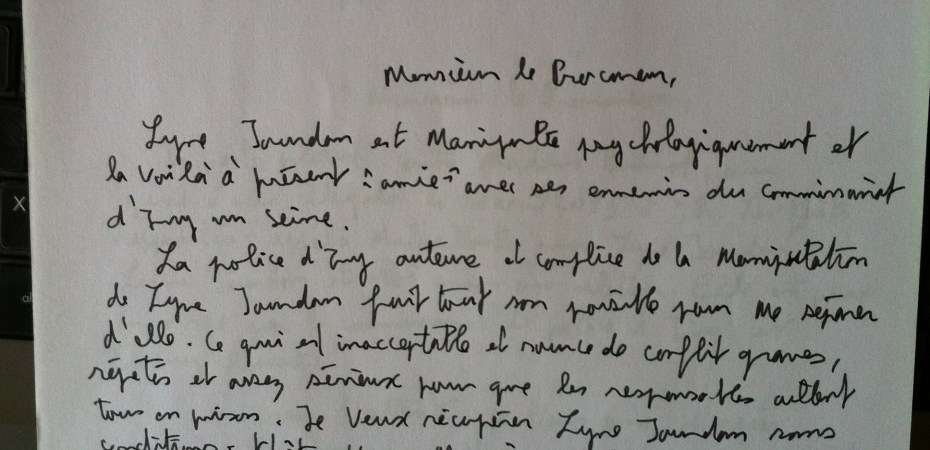 Monsieur le Procureur,
Lyne Jourdan est Manipulée psychologiquement et
la voilà à présent "amie" avec ses ennemis du commissariat
d'Ivry sur Seine.
La police d'Ivry auteure et complice de la Manipulation
de Lyne Jourdan fait tout son possible pour me séparer
d'elle. Ce qui est inacceptable et source de conflit graves,
répétés et assez sérieux pour que les responsables aillent
tous en prison. Je veux récupérer Lyne Jourdan sans